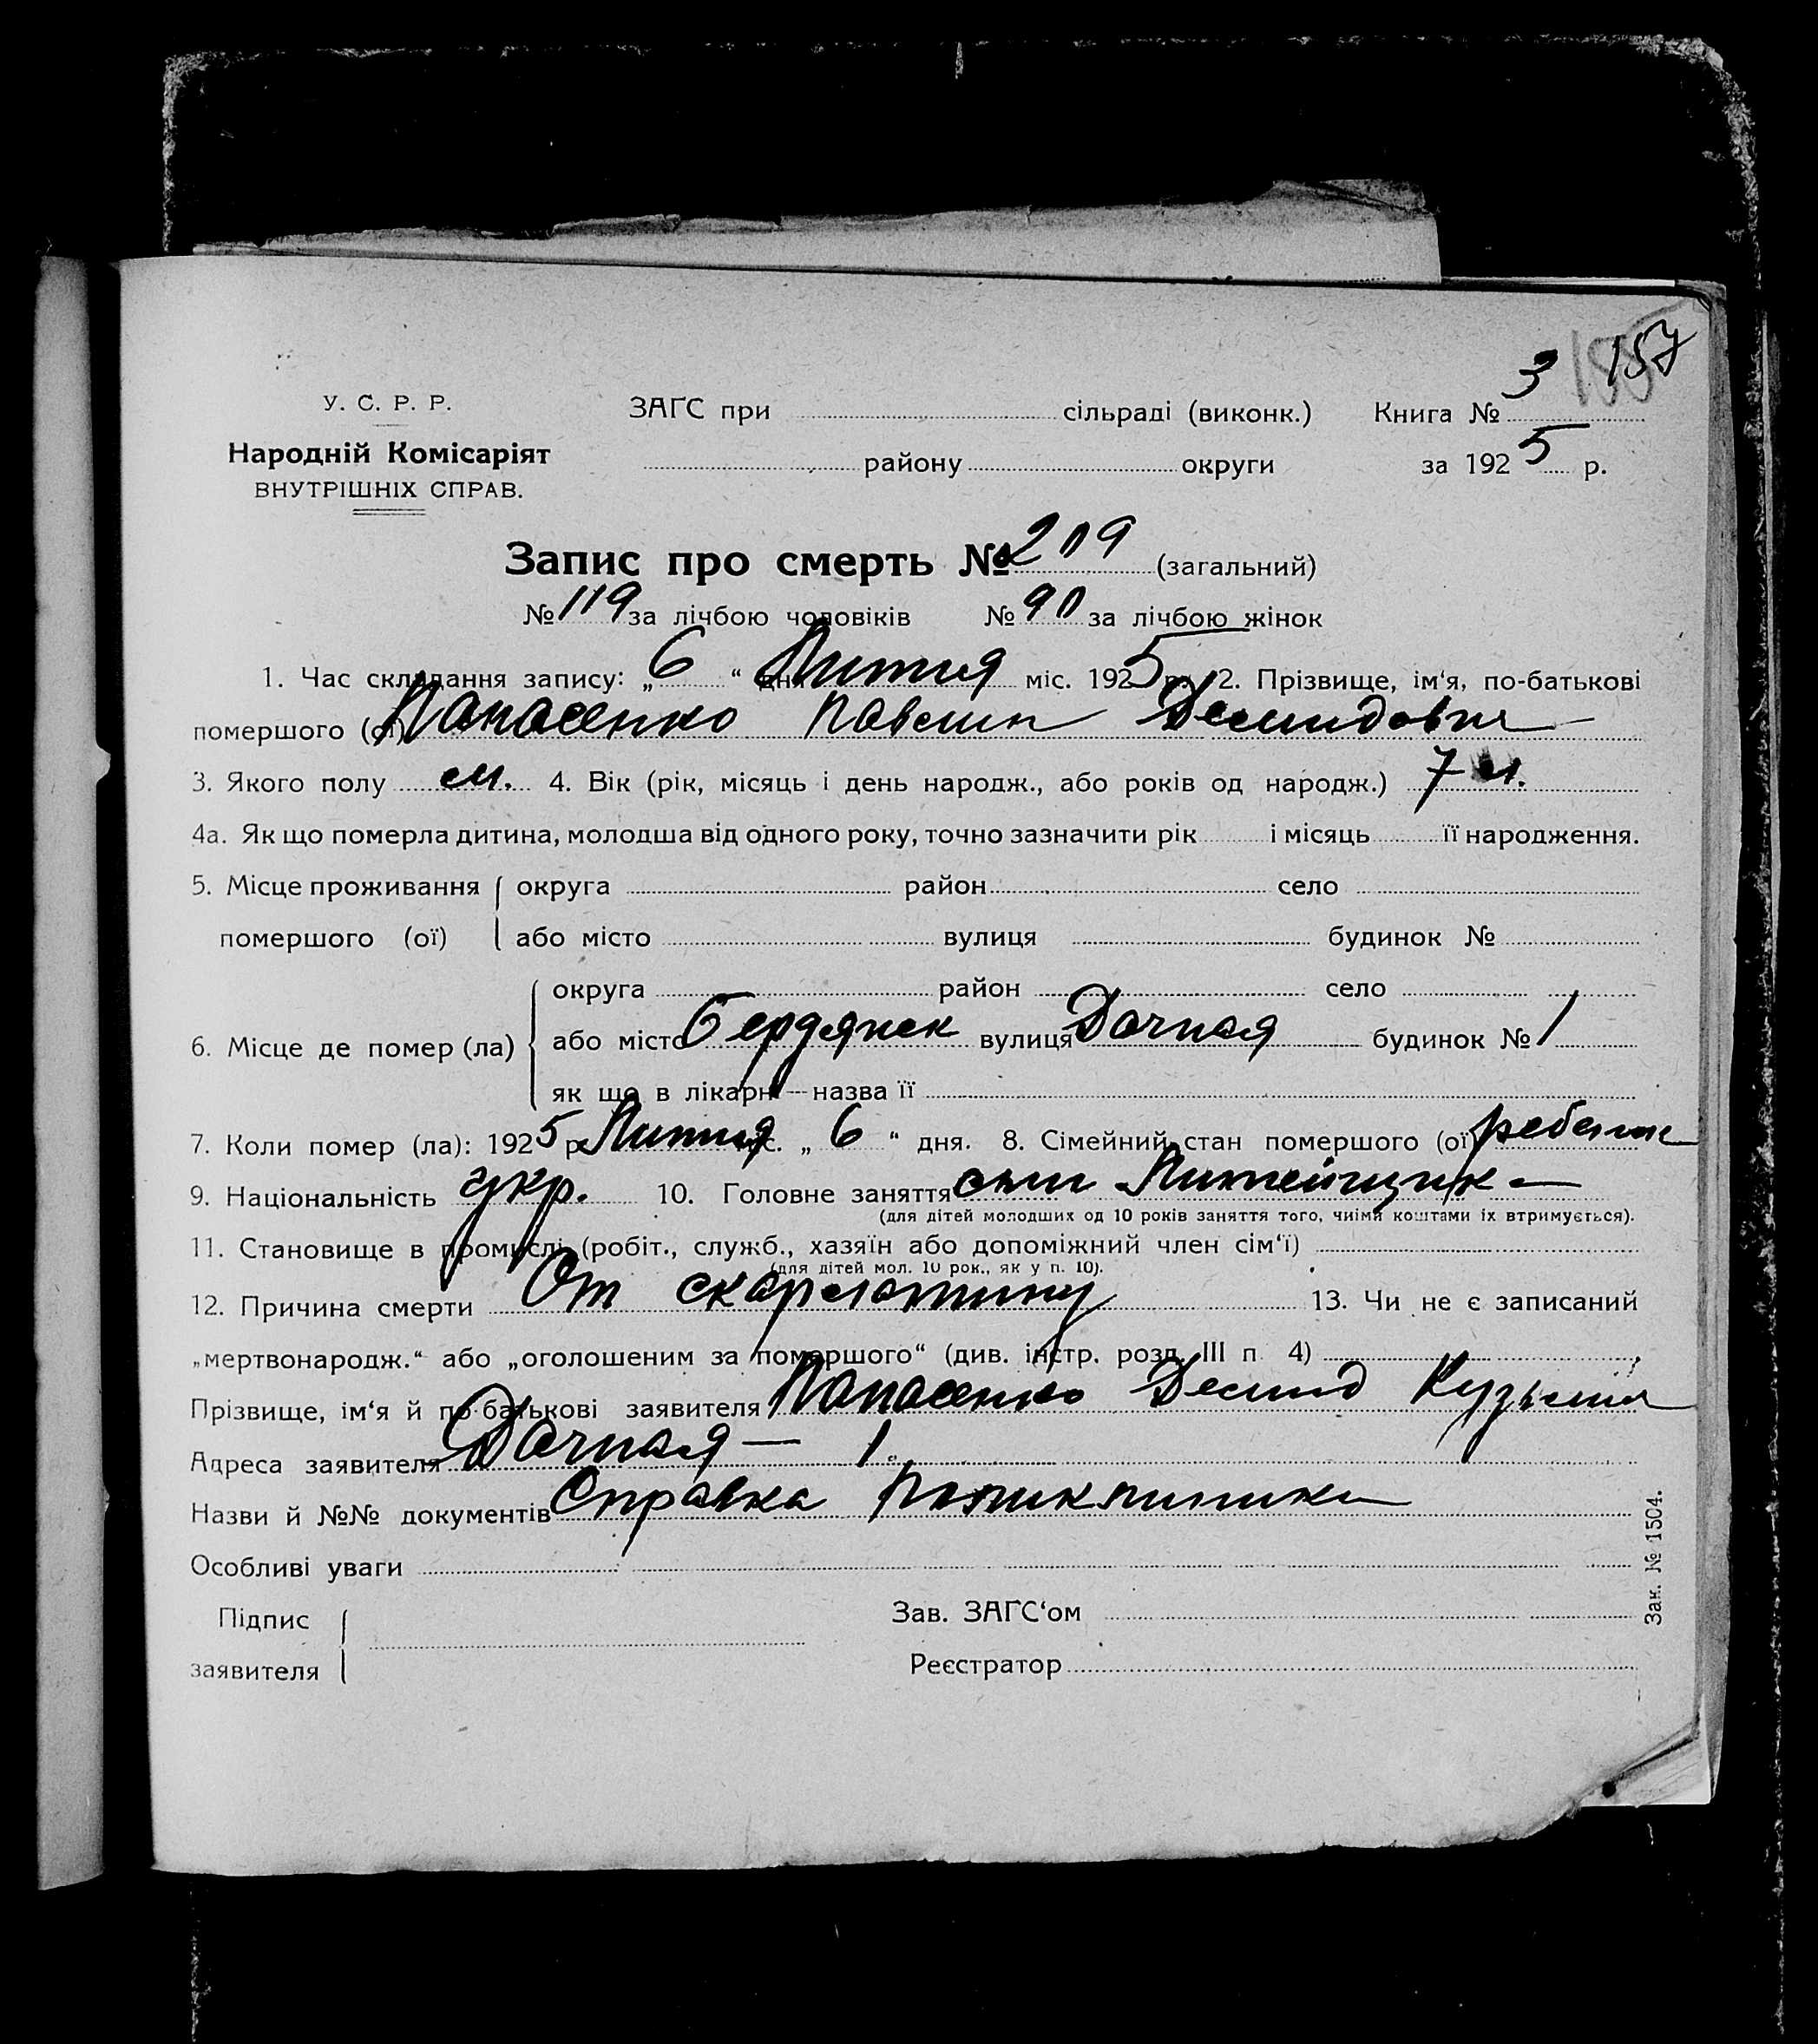 3 157
У. С. Р. Р. ЗАГС при сільраді (виконк.) Книга №
Народній Комісаріят району округи за 1925 р.
ВНУТРІШНІХ СПРАВ.
Запис про смерть № 209 (загальний)
№ 119 за лічбою чоловіків № 90 за лічбою жінок
1. Час складання запису: „6“ дня Липня міс. 1925 р. 2. Прізвище, ім‘я, по-батькові
помершого (ої) Панасенко Павелин Демидовня
3. Якого полу м. 4. Вік (рік, місяць і день народж., або років од народж.) 7 м.
4а. Як що померла дитина, молодша від одного року, точно зазначити рік і місяць її народження.
5. Місце проживання округа район село
помершого (ої) або місто вулиця будинок №
округа район село
6. Місце де помер (ла) або місто Бердянск вулиця Дачная будинок № 1
як що в лікарні — назва її
7. Коли помер (ла): 1925 р. Липня міс. „6“ дня. 8. Сімейний стан помершого (ої)
9. Національність укр. 10. Головне заняття сын Литейщик
(для дітей молодших од 10 років заняття того, чиїми коштами їх втримується).
11. Становище в промислі (робіт., служб., хазяїн або допоміжний член сім‘ї)
(для дітей мол. 10 рок., як у п. 10).
12. Причина смерти От скарлатину 13. Чи не є записаний
„мертвонародж.“ або „оголошеним за помершого“ (див. інстр. розд. III п 4)
Прізвище, ім‘я й по-батькові заявителя Панасенко Демид Кузьмич
Адреса заявителя Дачная — 1.
Назви й №№ документів Справка Поликлиники
Особливі уваги
Підпис Зав. ЗАГС‘ом
заявителя Реєстратор
Зак. № 1504.